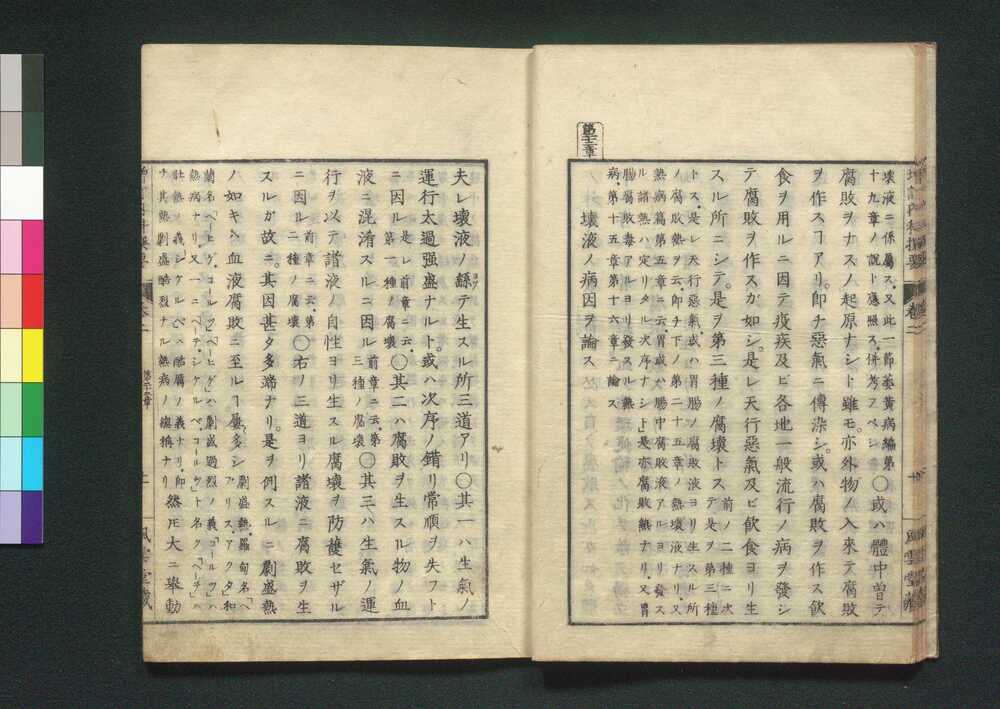 壞液ニ係屬ス、又此一節萎黄病編第
十九章ノ說ト應照ス、併考フベシ
〇或ハ體中曽テ
腐敗ヲナスノ起原ナシト雖モ、亦外物ノ入來テ腐敗
ヲ作スヿアリ。即チ惡氣ニ傳染シ、或ハ腐敗ヲ作ス飲
食ヲ用ルニ因テ疫疾及ビ各地一般流行ノ病ヲ發シ
テ腐敗ヲ作スガ如シ。是レ天行惡氣及ビ飲食ヨリ生
スル所ニシテ、是ヲ第三種ノ腐壞トス
前ノ二種ニ次
テ是ヲ第三種
トス、是レ天行惡氣、或ハ胃腸ノ腐敗液ヨリ生スル所
ノ腐敗熱ヲ云、即チ下ノ第二十五章ノ熱壞液ナリ、又
熱病篇第五章ニ云、胃或ハ腸中腐敗液アルヨリ發ス
ル諸熱ハ定リタル次序ナシト、是亦腐敗熱ナリ、又胃
腸腐敗毒アルヨリ發スルノ熱
病、第十五章第十六章ニ論ス
第二十三章
壞液ノ病因ヲ論ス
夫レ壞液ノ繇テ生スル所三道アリ〇其一ハ生氣ノ
運行太過強盛ナルト、或ハ次序ノ錯リ常順ヲ失フト
ニ因ル
是レ前章ニ云、
第一種ノ腐壞
〇其二ハ腐敗ヲ生スル物ノ血
液ニ混淆スルニ因ル
前章ニ云、第
三種ノ腐壞
〇其三ハ生氣ノ運
行ヲ以テ諸液ノ自性ヨリ生スル腐壞ヲ防護セザル
ニ因ル
前章ニ云、第
二種ノ腐壞
〇右ノ三道ヨリ諸液ニ腐敗ヲ生
スルガ故ニ、其因甚タ多端ナリ。是ヲ例スルニ劇盛熱
ノ如キハ血液腐敗ニ至ルヿ屢多シ
劇盛熱、羅甸名ヘ
ブリス、アクタ、和
蘭名「ヘーヒゲ、コールツ」「ヘーヒゲ」ハ劇盛過烈ノ義「コールツ」ハ
熱病ナリ、又一ニ「ヘーテ、シケルペ、コールツ」ト名ク、「ヘーテ」ハ
壯熱ノ義「シケルペ」ハ酷厲ノ義ナリ、即
チ其熱劇盛酷烈ナル熱病ノ總稱ナリ
然𪜈大ニ擧動
卷二
第二十三章
十
風雲堂藏